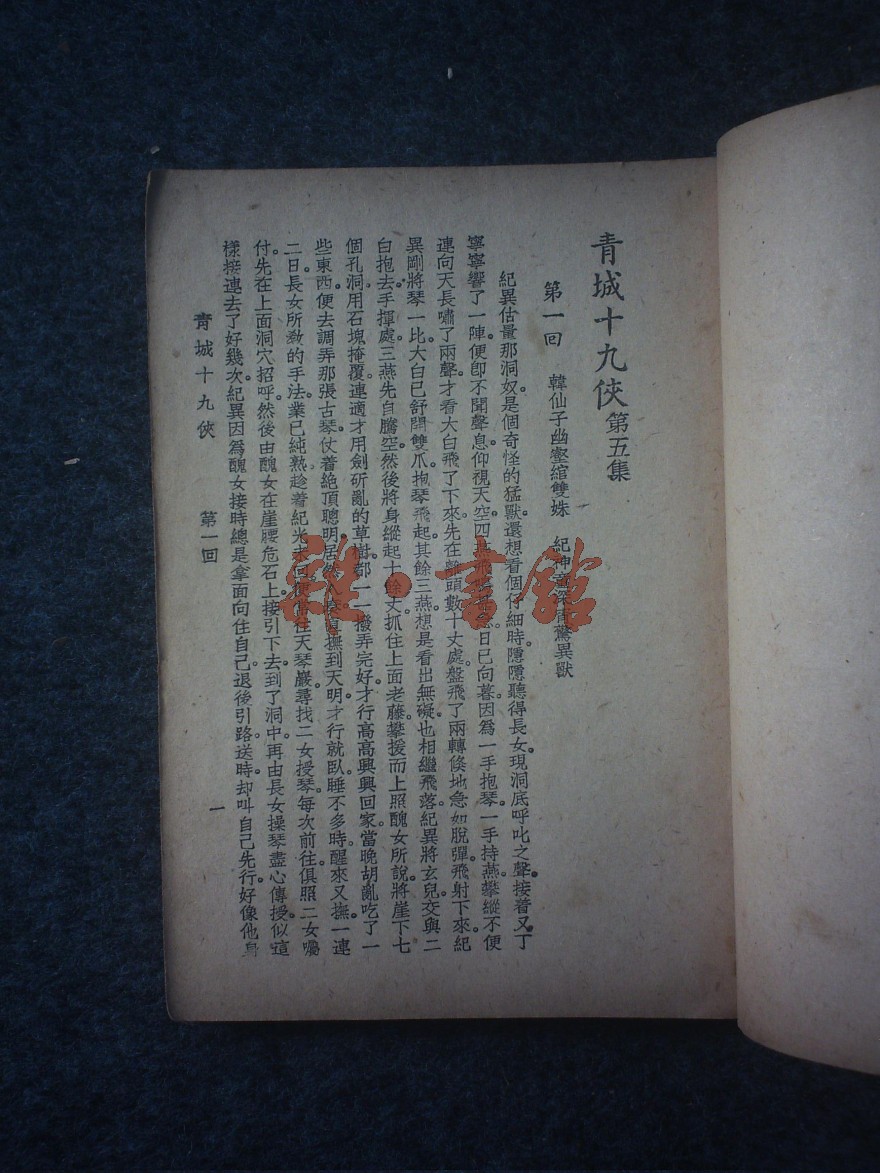 青城十九俠第五集
第一回　韓仙子幽壑綰雙姝　紀神童深宵驚異獸
紀異估量那洞奴。是個奇怪的猛獸。還想看個仔細時。隱隱聽得長女。現洞底呼叱之聲。接着又丁
寧寧響了一陣。便卽不聞聲息。仰視天空。四燕飛鳴甚急。日已向暮。因爲一手抱琴。一手持燕。攀縱不便
連向天長嘯了兩聲。才看大白飛了下來。先在離頭數十丈處。盤飛了兩轉。倏地急如脫彈。飛射下來。紀
異剛將琴一比。大白已舒開雙爪。抱琴飛起。其餘三燕。想是看出無礙。也相繼飛落。紀異將玄兒交與二
白抱去。手揮處。三燕先自騰空。然後將身縱起十餘丈。抓住上面老藤。攀援而上。照醜女所說。將崖下七
個孔洞。用石塊掩覆。連適才用劍斫亂的草樹。都一一撥弄完好。才行高高興興回家。當晚胡亂吃了一
些東西。便去調弄那張古琴。仗着絶頂聰明。居然入 撫到天明。才行就臥。睡不多時。醒來又撫。一連
二日。長女所教的手法。業已純熟。趁着紀光未回。便當往天琴巖尋找二女授琴。每次前往。俱照二女囑
付。先在上面洞穴招呼。然後由醜女在崖腰危石上。接引下去。到了洞中。再由長女操琴。盡心傳授。似這
樣接連去了好幾次。紀異因爲醜女接時。總是拿面向住自己。退後引路。送時。却叫自己先行。好像他身
青城十九俠　第一回　一
雜·書館